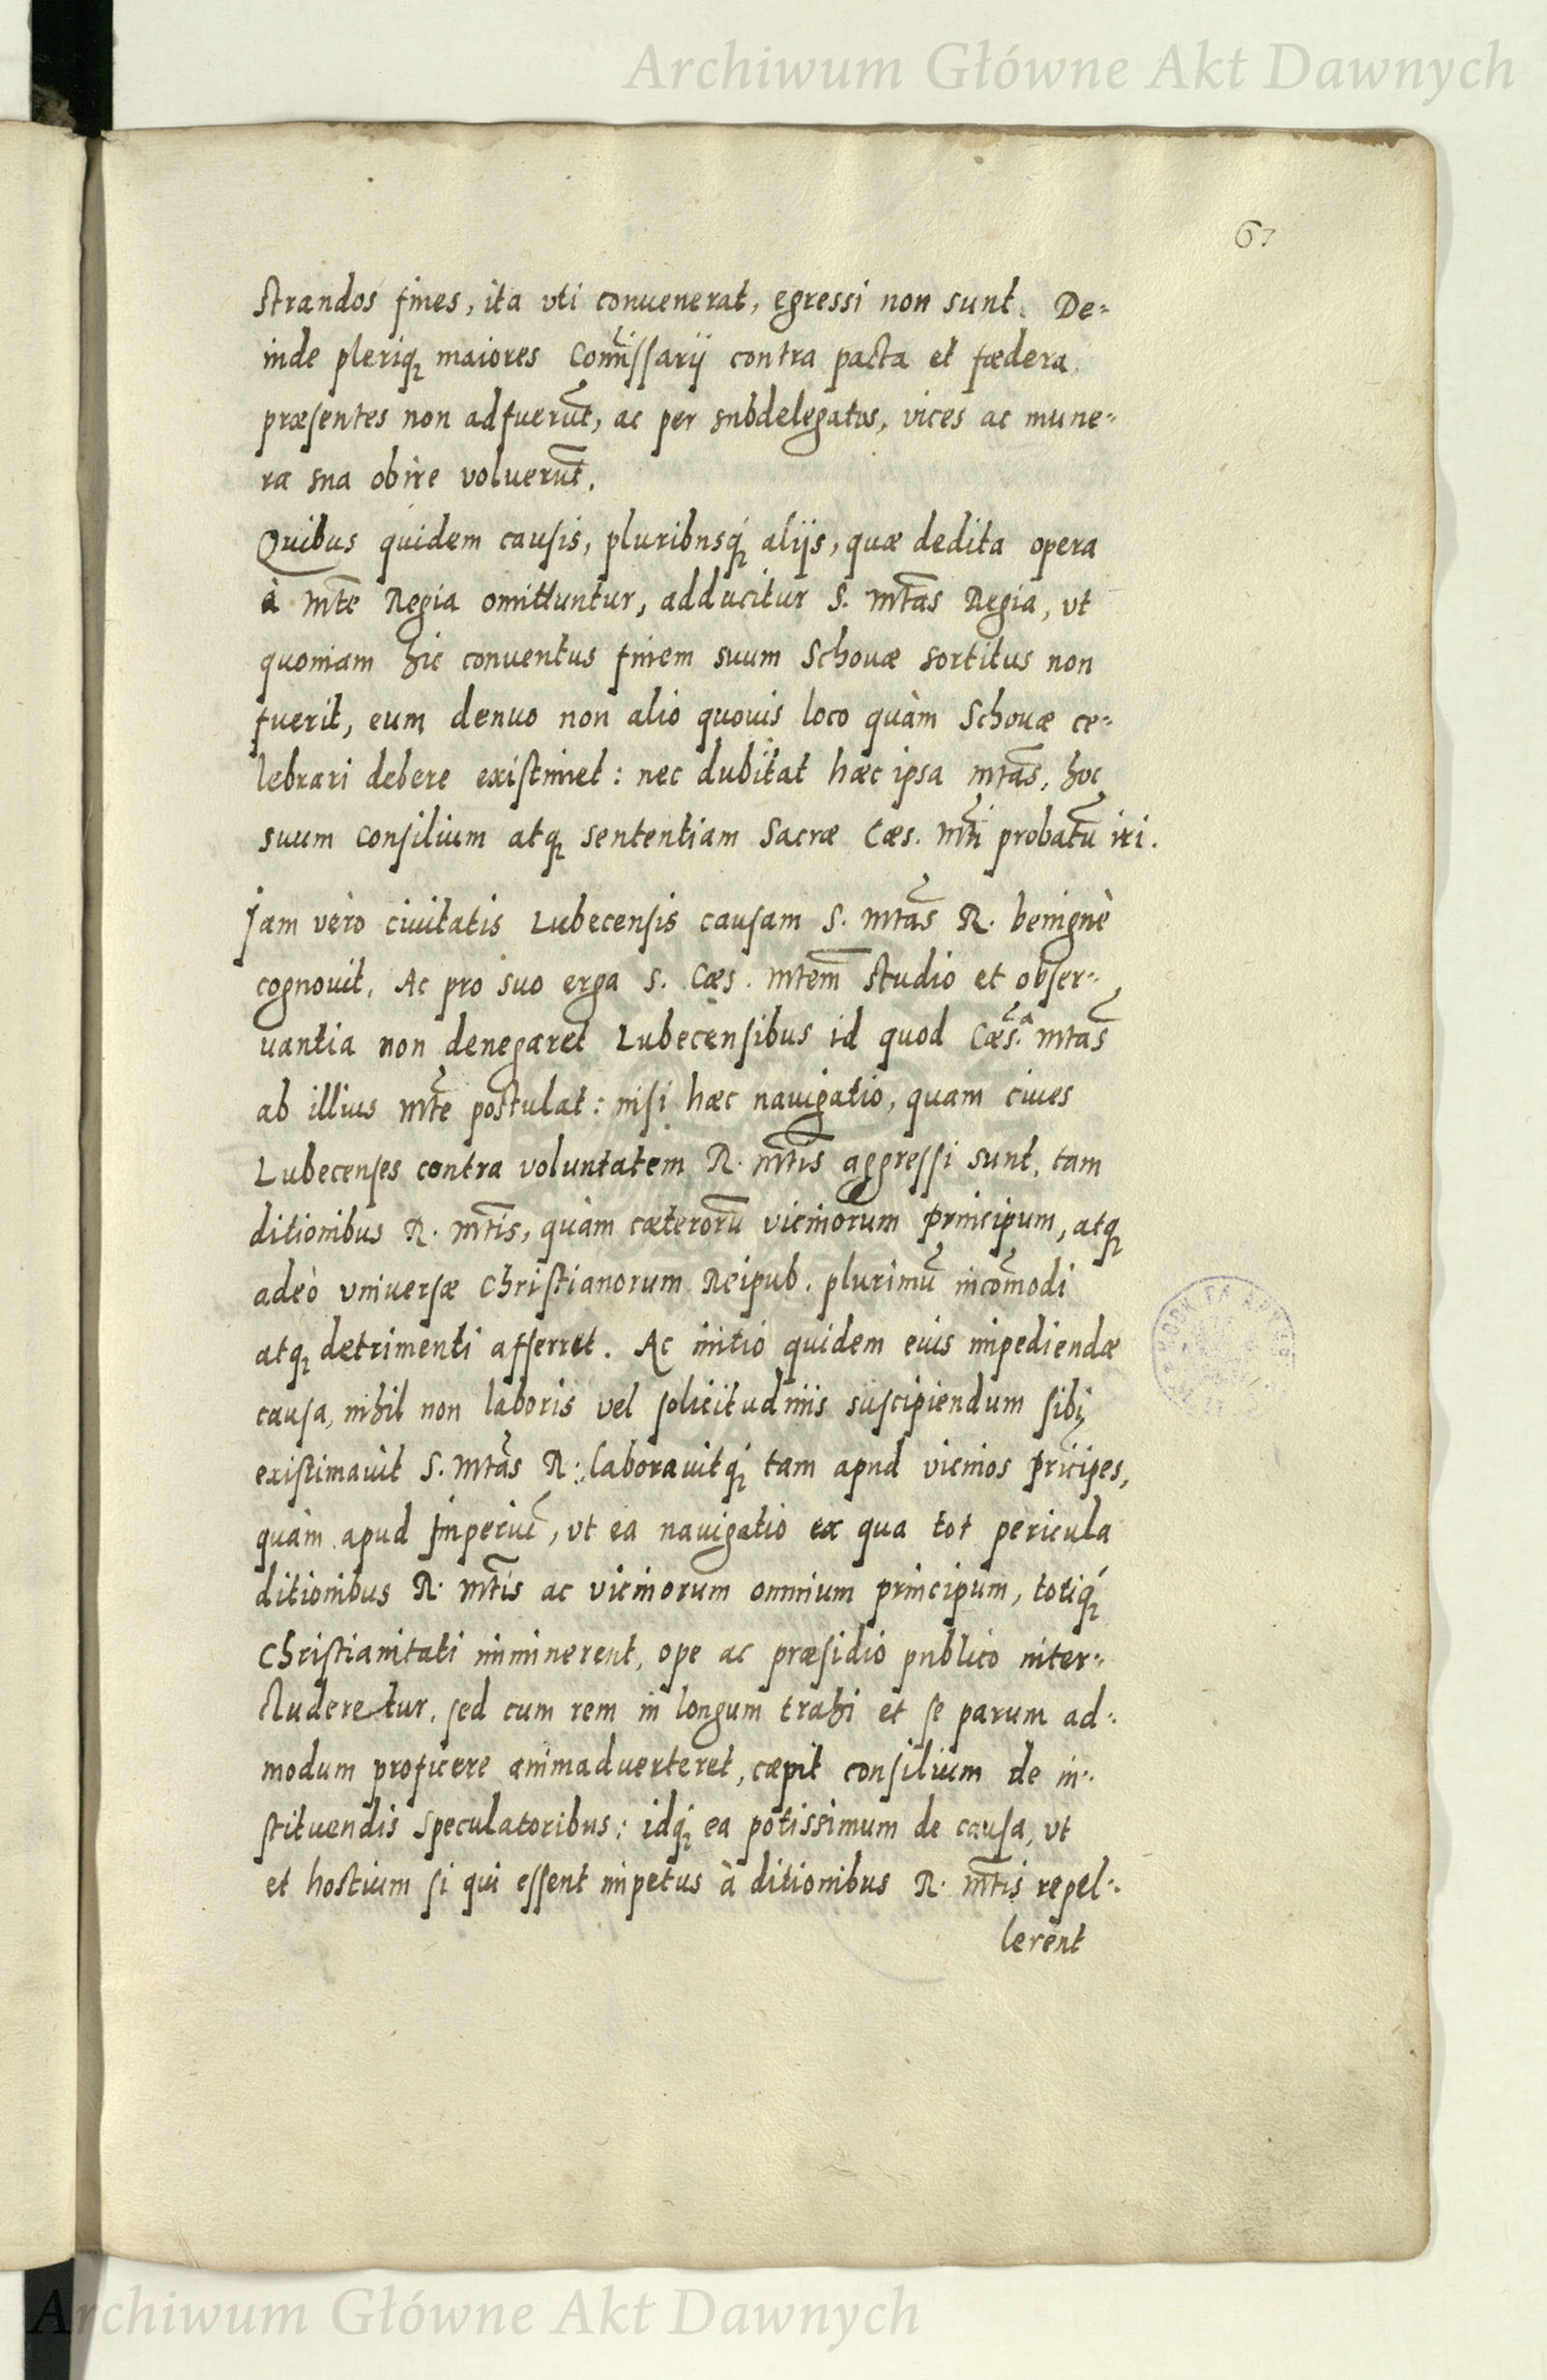 Archiwum Główne Akt Dawnych
67
strandos fines, ita vti conuenerat, egressi non sunt. De=
inde pleriq₃ maiores Com̃issarij contra pacta et fœdera
præsentes non adfuerũt, ac per subdelegatos, vices ac mune=
ra sua obire voluerũt.
Quibus quidem causis, pluribusq́₃ alijs, quæ dedita opera
à Mt̃e Regia omittuntur, adducitur S. Mt̃as Regia, vt
quoniam hic conuentus finem suum Schouæ sortitus non
fuerit, eum denuo non alio quouis loco quàm Schouæ ce=
lebrari debere existimet: nec dubitat hæc ipsa Mt̃as, hoc
suum consilium atq₃ sententiam Sacræ Cæs. Mt̃i probatũ iri.
Jam vèro ciuitatis Lubecensis causam S. Mt̃as R. benignè
cognouit. Ac pro suo erga S. Cæs. Mt̃em studio et obser=
uantia non denegaret Lubecensibus id quod Cæs.ᵃ Mt̃as
ab illius Mt̃e postulat: nisi hæc nauigatio, quam ciues
Lubecenses contra voluntatem R. Mt̃is aggressi sunt, tam
ditionibus R. Mt̃is, quàm cæterorũ vicinorum principum, atq₃
adeò vniuersæ Christianorum Reipub. plurimũ incõmodi
atq₃ detrimenti afferret. Ac initio quidem eius impediendæ
causa, nihil non laboris vel solicitudinis suscipiendum sibi
existimauit S. Mt̃as R: laborauitq́₃ tam apud vicinos prĩcipes,
quàm apud Imperiũ, vt ea nauigatio ex qua tot pericula
ditionibus R. Mt̃is ac vicinorum omnium principum, totiq́₃
Christianitati imminerent, ope ac præsidio publico inter=
cluderetur. sed cum rem in longum trahi et se parum ad=
modum proficere animaduerteret, cæpit consilium de in=
stituendis speculatoribus: idq́₃ ea potissimum de causa, vt
et hostium si qui essent impetus à ditionibus R. Mt̃is repel=
lerent
Archiwum Główne Akt Dawnych